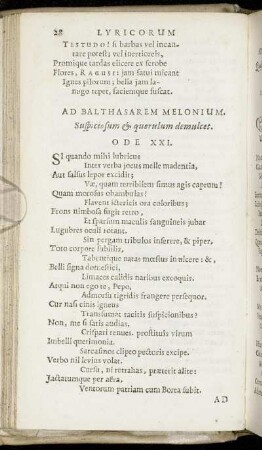 28 LYRICORUM
TESTUDO! si barbas vel incan-
tare potest; vel inerriores,
Promique tardas elicere ex scrobe
Flores, RAGUSI: jam fatui micant
Ignes pilorum; bella jam la-
nugo repet, faciemque fuscat.
AD BALTHASAREM MELONIUM.
Suspiciosum & querulum demulcet.
ODE XXI.
SI quando mihi lubricus
Inter verba jocus melle madentia,
Aut salsus lepor excidit;
Væ, quam terribilem sumis agis caprum!
Quam morosus obambulas!
Flavent ictericis ora coloribus;
Frons nimbosa fugit retro,
Et sparsum maculis sanguineis jubar
Lugubres oculi rotant.
Sin pergam tribulos inserere, & piper,
Toto corpore subsilis,
Tabentique natas mersus in ulcere: &,
Belli signa
Limaces calidis naribus excoquit.
Atqui non ego te, Pepo,
Admorsu tigridis frangere persequor.
Cur nasi cinis igneus
Transfumat tacitis suspicionibus?
Non, me si satis audias,
Crispari renues. prostituis virum
Imbelli querimonia.
Sarcasmos clipeo pectoris excipe.
Verbo nil levius volat.
Cursu, ni retrahas, præterit alite:
Jactatumque per astra,
Ventorum patriam cum Borea subit.
AD